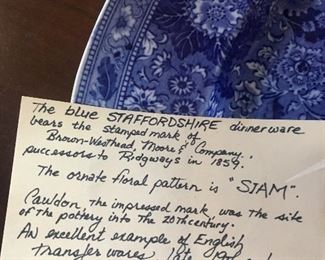 The blue STAFFORDSHIRE dinnerware
bears the stamped mark of
Brown-Westhead, Moore & Company;
successors to Ridgways in 1859.
The ornate floral pattern is "SIAM".
Cauldon, the impressed mark, was the site
of the pottery into the 20th century.
An excellent example of English
Transfer wares, late